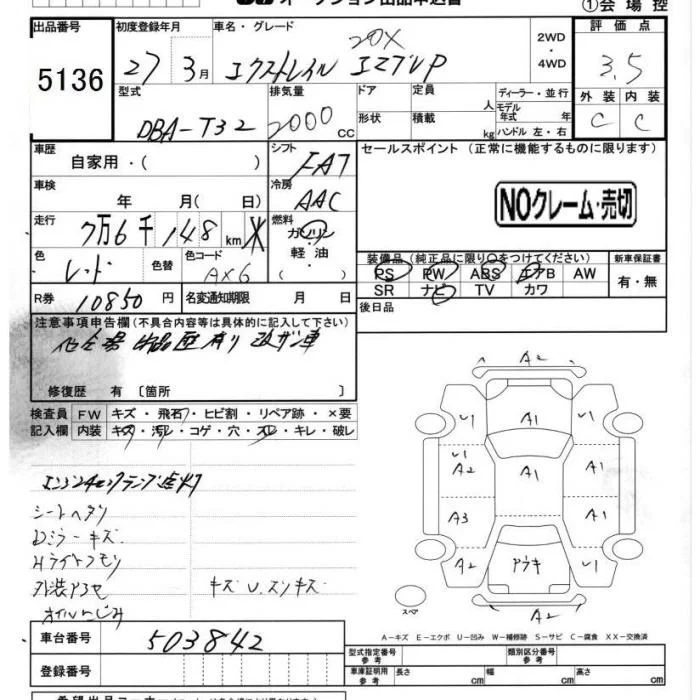 オークション出品申込書
①会場控
出品番号 5136
初度登録年月 27 3月
車名・グレード 20X
エクストレイル エマブレP
2WD・4WD
評価点 3.5
外装 C 内装 C
型式 DBA-T32
排気量 2000 CC
ドア 形状
定員 人
積載 kg
ディーラー・並行
モデル年式 年
ハンドル 左・右
車歴 自家用・( )
シフト FA7
セールスポイント (正常に機能するものに限ります)
NOクレーム・売切
車検 年 月( 日)
冷房 AAC
走行 7万6千148 km
燃料 ガソリン・軽油・( )
色 レッド
色替
色コード AX6
装備品(純正品に限り○をつけてください)
PS PW ABS エアB AW
SR ナビ TV カワ
新車保証書 有・無
R券 10850 円
名変通知期限 月 日
後日品
注意事項申告欄(不具合内容等は具体的に記入して下さい)
他会場出品歴有り 改ザン車
修復歴 有〔箇所 〕
検査員記入欄
FW キズ・飛石・ヒビ割・リペア跡・×要
内装 キズ・汚レ・コゲ・穴・スレ・キレ・破レ
エンジンチェックランプ点灯
シートヘタリ
Dミラーキズ
Hライトクモリ
外装アセ
キズU.スリキズ
オイルにじみ
A2
U1 A1 U1
U1 A2 A1 A1
A3 A1
A2 アウキ A2
スペア
A2
A-キズ E-エクボ U-凹み W-補修跡 S-サビ C-腐食 XX-交換済
車台番号 503842
登録番号
型式指定番号 参考
類別区分番号 参考
車庫証明用 参考 長さ cm 幅 cm 高さ cm